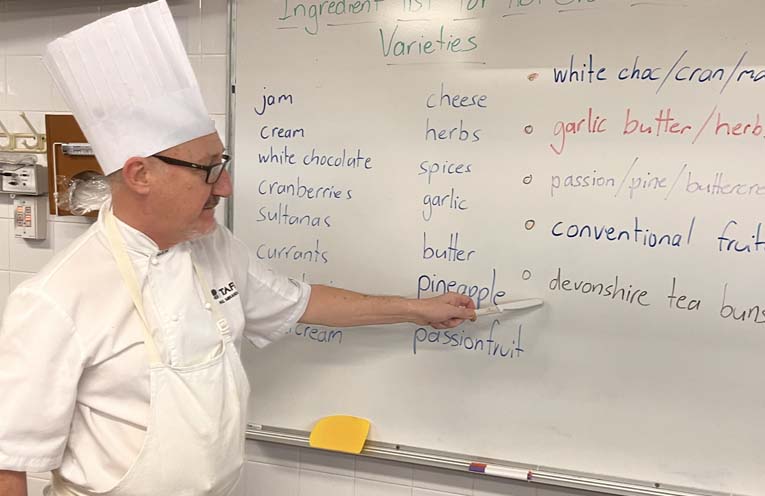 Ingredient list for hot
Varieties
jam
cream
white chocolate
cranberries
sultanas
currants
cheese
herbs
spices
garlic
butter
pineapple
passionfruit
white choc/cran/ma
garlic butter/herbs
passion/pine/buttercre
conventional fruit
devonshire tea buns
TAFE